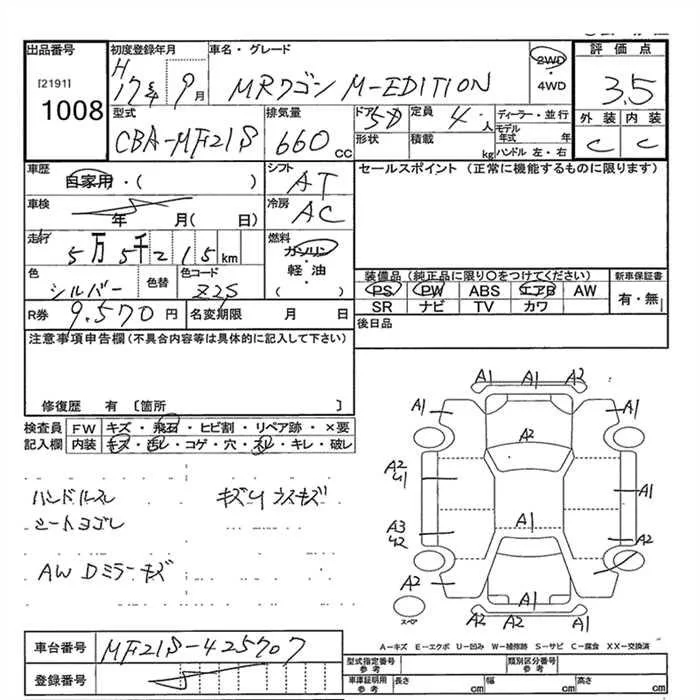 出品番号 初度登録年月 車名・グレード 評価点
[2191]
1008
H17年 9月 MRワゴン M-EDITION 2WD・4WD 3.5
型式 排気量 ドア 定員 ディーラー・並行 外装 内装
CBA-MF21S 660cc 5D 4人 モデル年式 年 C C
形状 積載 kg ハンドル 左・右
車歴 シフト セールスポイント (正常に機能するものに限ります)
自家用・( ) AT
車検 冷房
年 月( 日) AC
走行 燃料
5万5千215km ガソリン・軽油( )
色 色替 色コード 装備品(純正品に限り○をつけてください) 新車保証書
シルバー Z2S PS PW ABS エアB AW 有・無
SR ナビ TV カワ
R券 9,570円 名変期限 月 日 後日品
注意事項申告欄(不具合内容等は具体的に記入して下さい)
修復歴 有 [箇所 ]
検査員 FW キズ・飛石・ヒビ割・リペア跡・×要
記入欄 内装 キズ・汚レ・コゲ・穴・スレ・キレ・破レ
ハンドルスレ キズリ ウスキズ
シートヨゴレ
AW Dミラーキズ
A1 A1 A2
A1 A1
A2
A2 U1 A1
A3 U2 A1 A2
A2
A1
A2 A1
スペア
A-キズ E-エクボ U-凹み W-補修跡 S-サビ C-腐食 XX-交換済
車台番号 MF21S-425707
型式指定番号 参考 類別区分番号 参考
登録番号
車庫証明用 参考 長さ cm 幅 cm 高さ cm